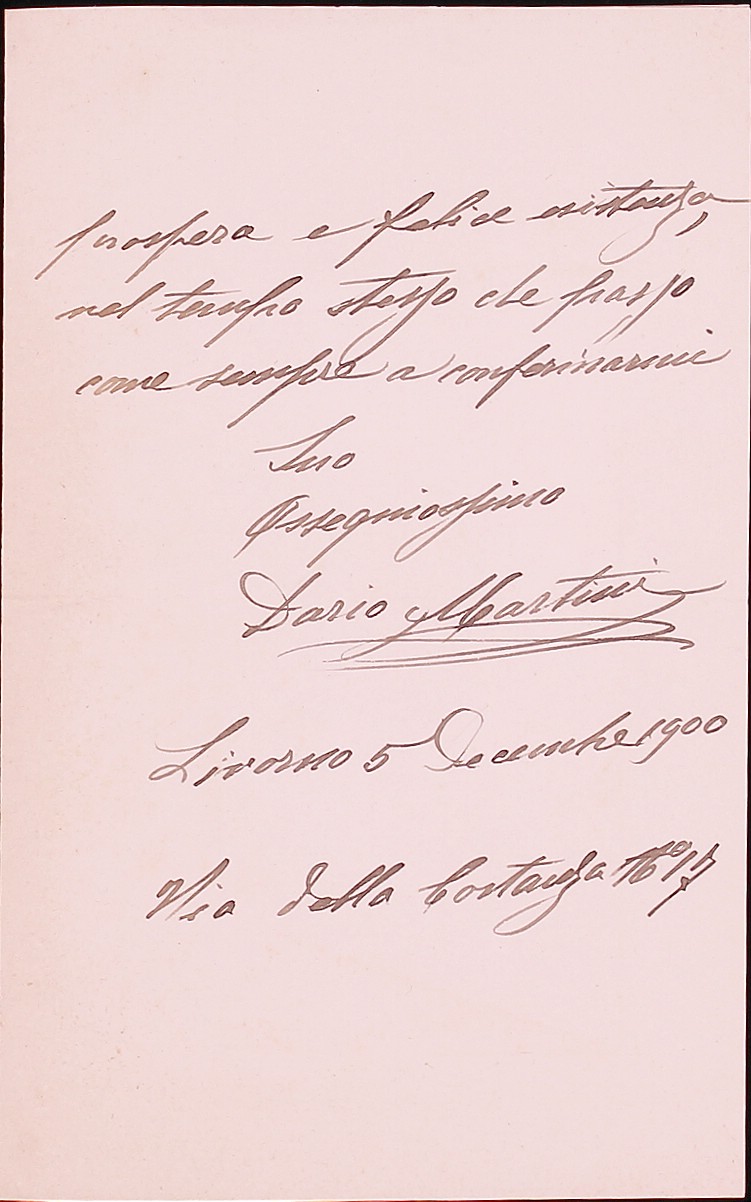 prospera e felice esistenza,
nel tempo stesso che passo
come sempre a confermarmi
Suo
Ossequiosissimo
Dario Martini
Livorno 5 Decembre 1900
Via della Costanza No 17